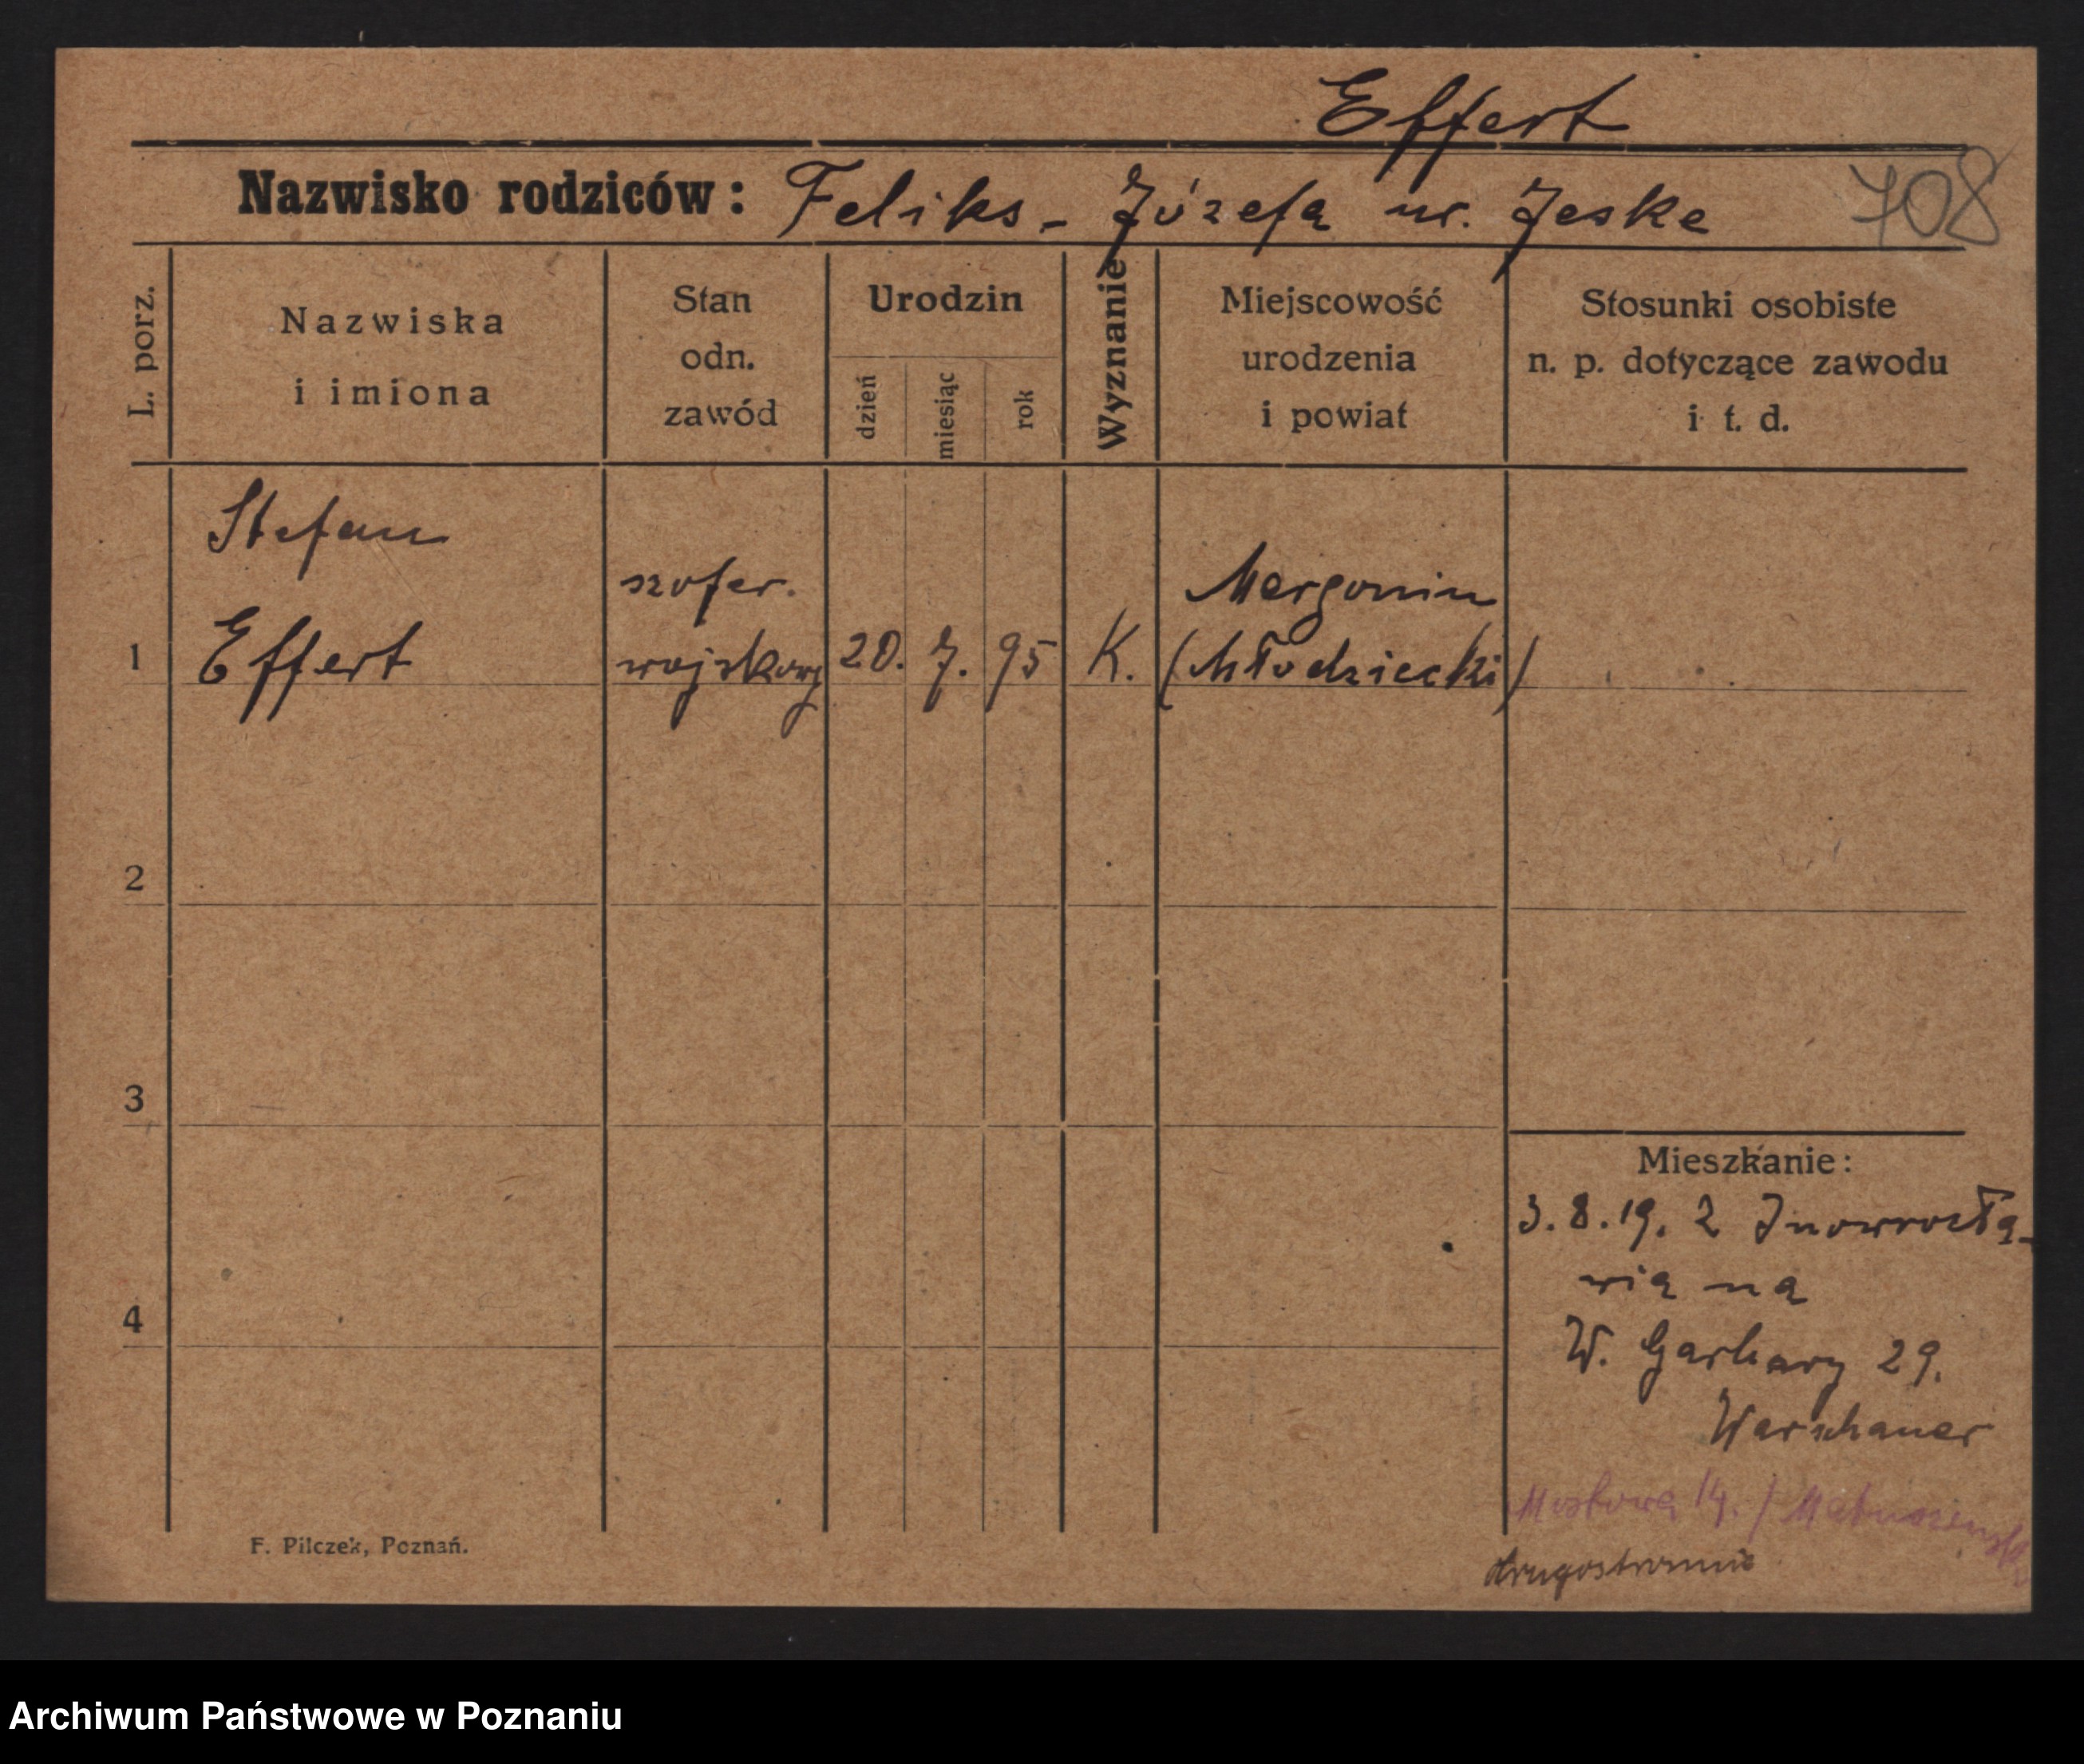 Effert
Nazwisko rodziców: Feliks - Józefa ur. Jeske
708
L. porz.
Nazwiska
i imiona
Stan
odn.
zawód
Urodzin
dzień
miesiąc
rok
Wyznanie
Miejscowość
urodzenia
i powiat
Stosunki osobiste
n. p. dotyczące zawodu
i t. d.
Stefan
szofer.
Margonin
1 Effert wojskowy 20. 7. 95 K.
2
3
4
Mieszkanie:
3.8.19. z Inowrocła-
wia na
W. Garbary 29.
Warschauer
Mostowa 14. /
drugostronnie
F. Pilczek, Poznań.
Archiwum Państwowe w Poznaniu